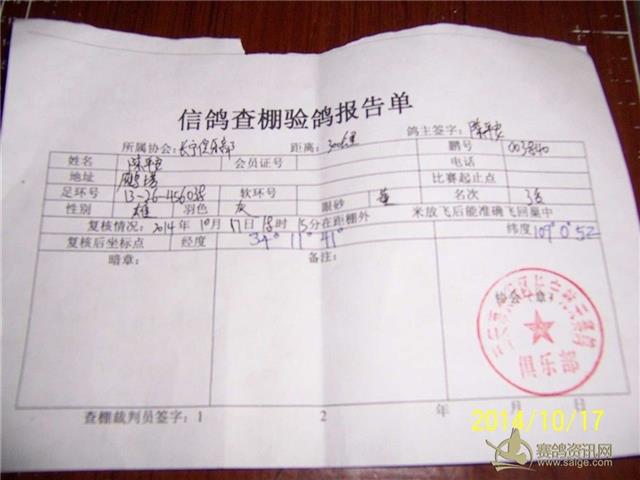 信鸽查棚验鸽报告单
所属协会:长宁俱乐部 距离:300公里 鸽主签字:陈平
姓名 陈平 会员证号 鹏号 003840
地址 电话
足环号 13-26-456038 软环号 比赛起止点
性别 雄 羽色 灰 眼砂 黄 名次 3名
复核情况:2014年10月17日18时15分在距棚外 米放飞后能准确飞回巢中
复核后坐标点 经度 34° 11° 41° 纬度 109° 0 52
暗章: 备注:
协会(章)
俱乐部
查棚裁判员签字:1 2 年 月 日
2014/10/17
赛鸽资讯网
www.saige.com